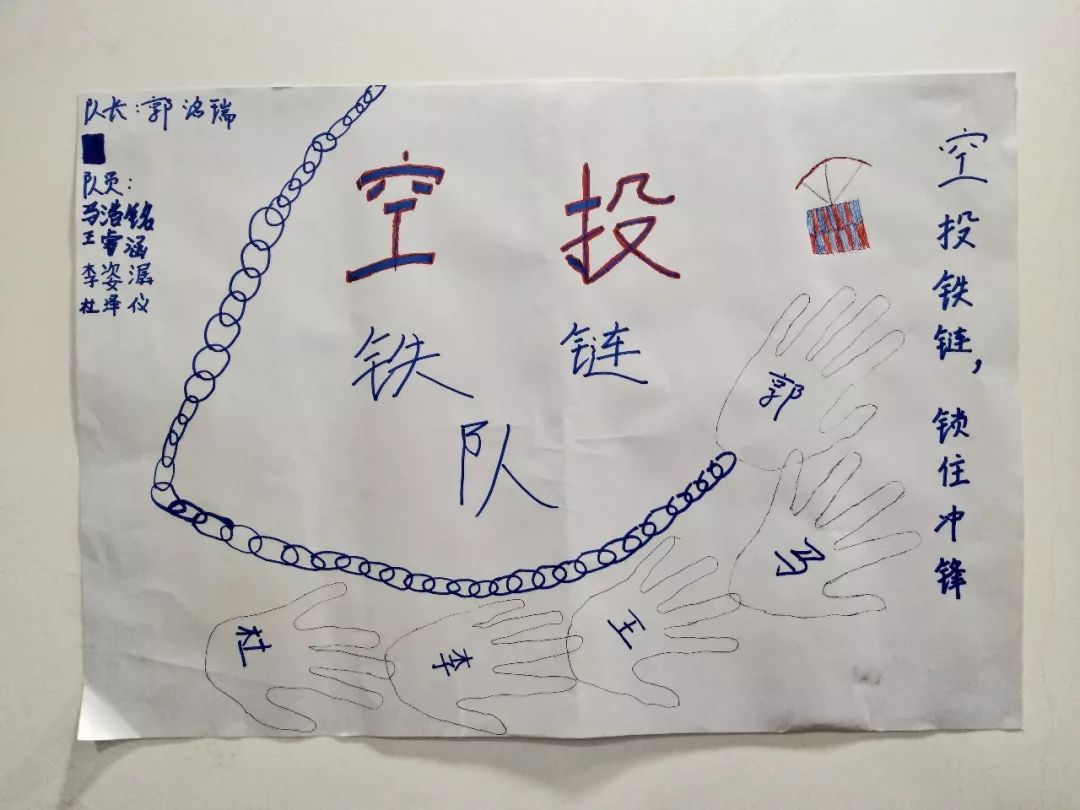 队长：郭洺瑞
队员：
马浩铭
王睿涵
李姿潺
杜泽仪
空投
铁链
队
空投铁链，锁住冲锋
郭
马
王
李
杜